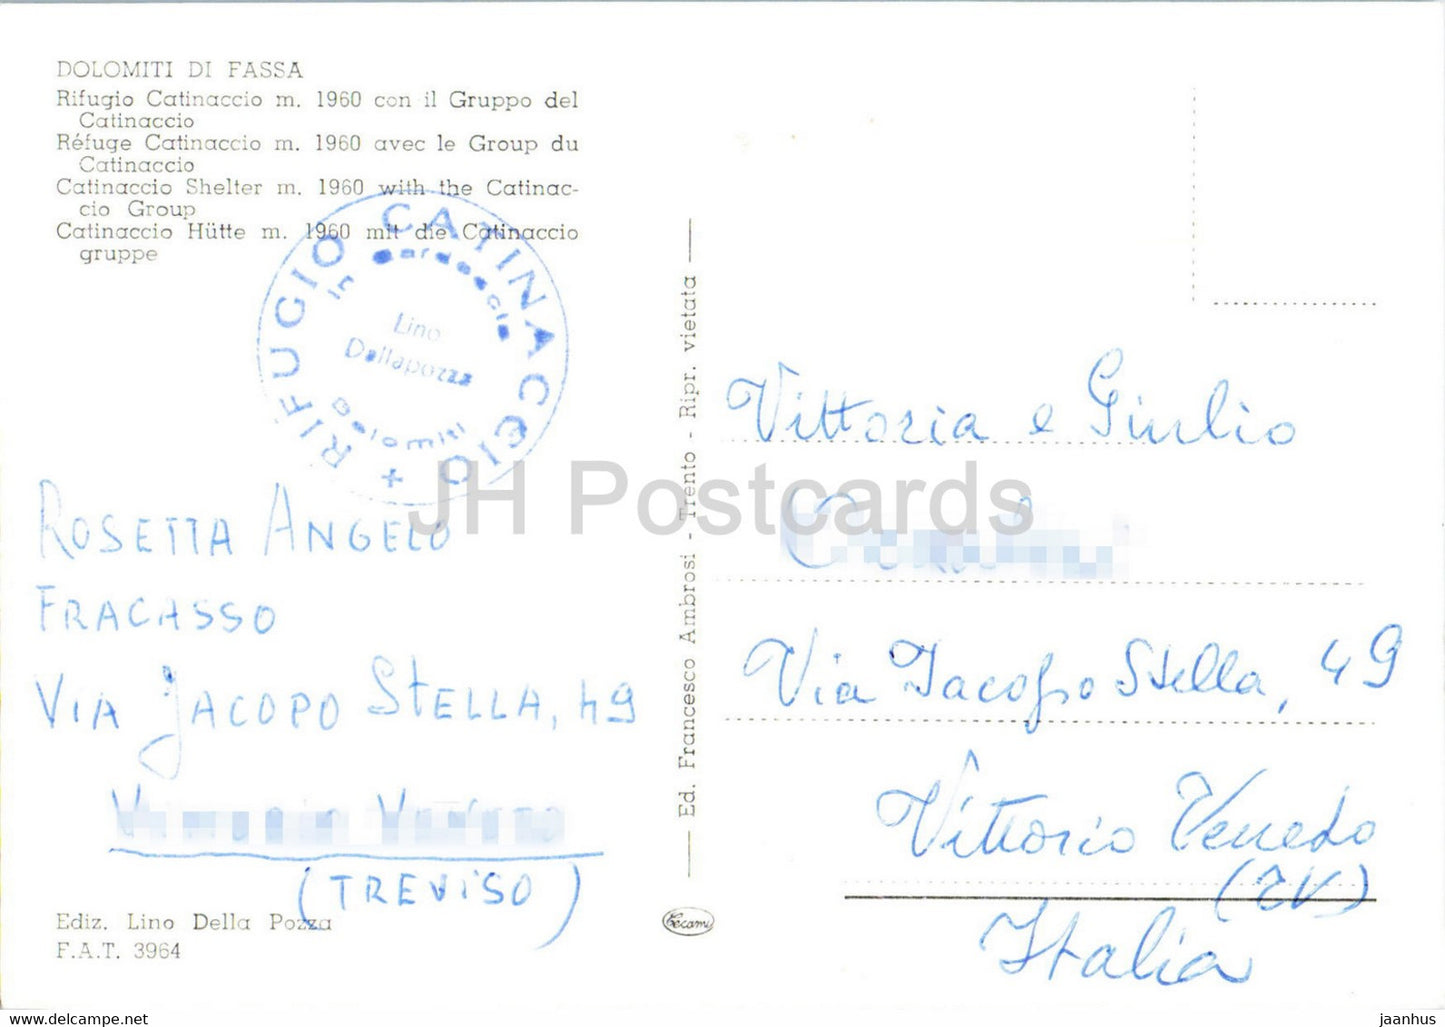 DOLOMITI DI FASSA
Rifugio Catinaccio m. 1960 con il Gruppo del
Catinaccio
Réfuge Catinaccio m. 1960 avec le Group du
Catinaccio
Catinaccio Shelter m. 1960 with the Catinac-
cio Group
Catinaccio Hütte m. 1960 mit die Catinaccio
gruppe
RIFUGIO CATINACCIO +
in
Lino
Dallapozza
Dolomiti
ROSETTA ANGELO
FRACASSO
VIA JACOPO STELLA, 49
(TREVISO)
Ediz. Lino Della Pozza
F.A.T. 3964
Ed. Francesco Ambrosi - Trento - Ripr. vietata
Cecami
JH Postcards
Vittoria e Giulio
Via Jacopo Stella, 49
Vittorio Veneto
(TV)
Italia
jaanhus
www.delcampe.net